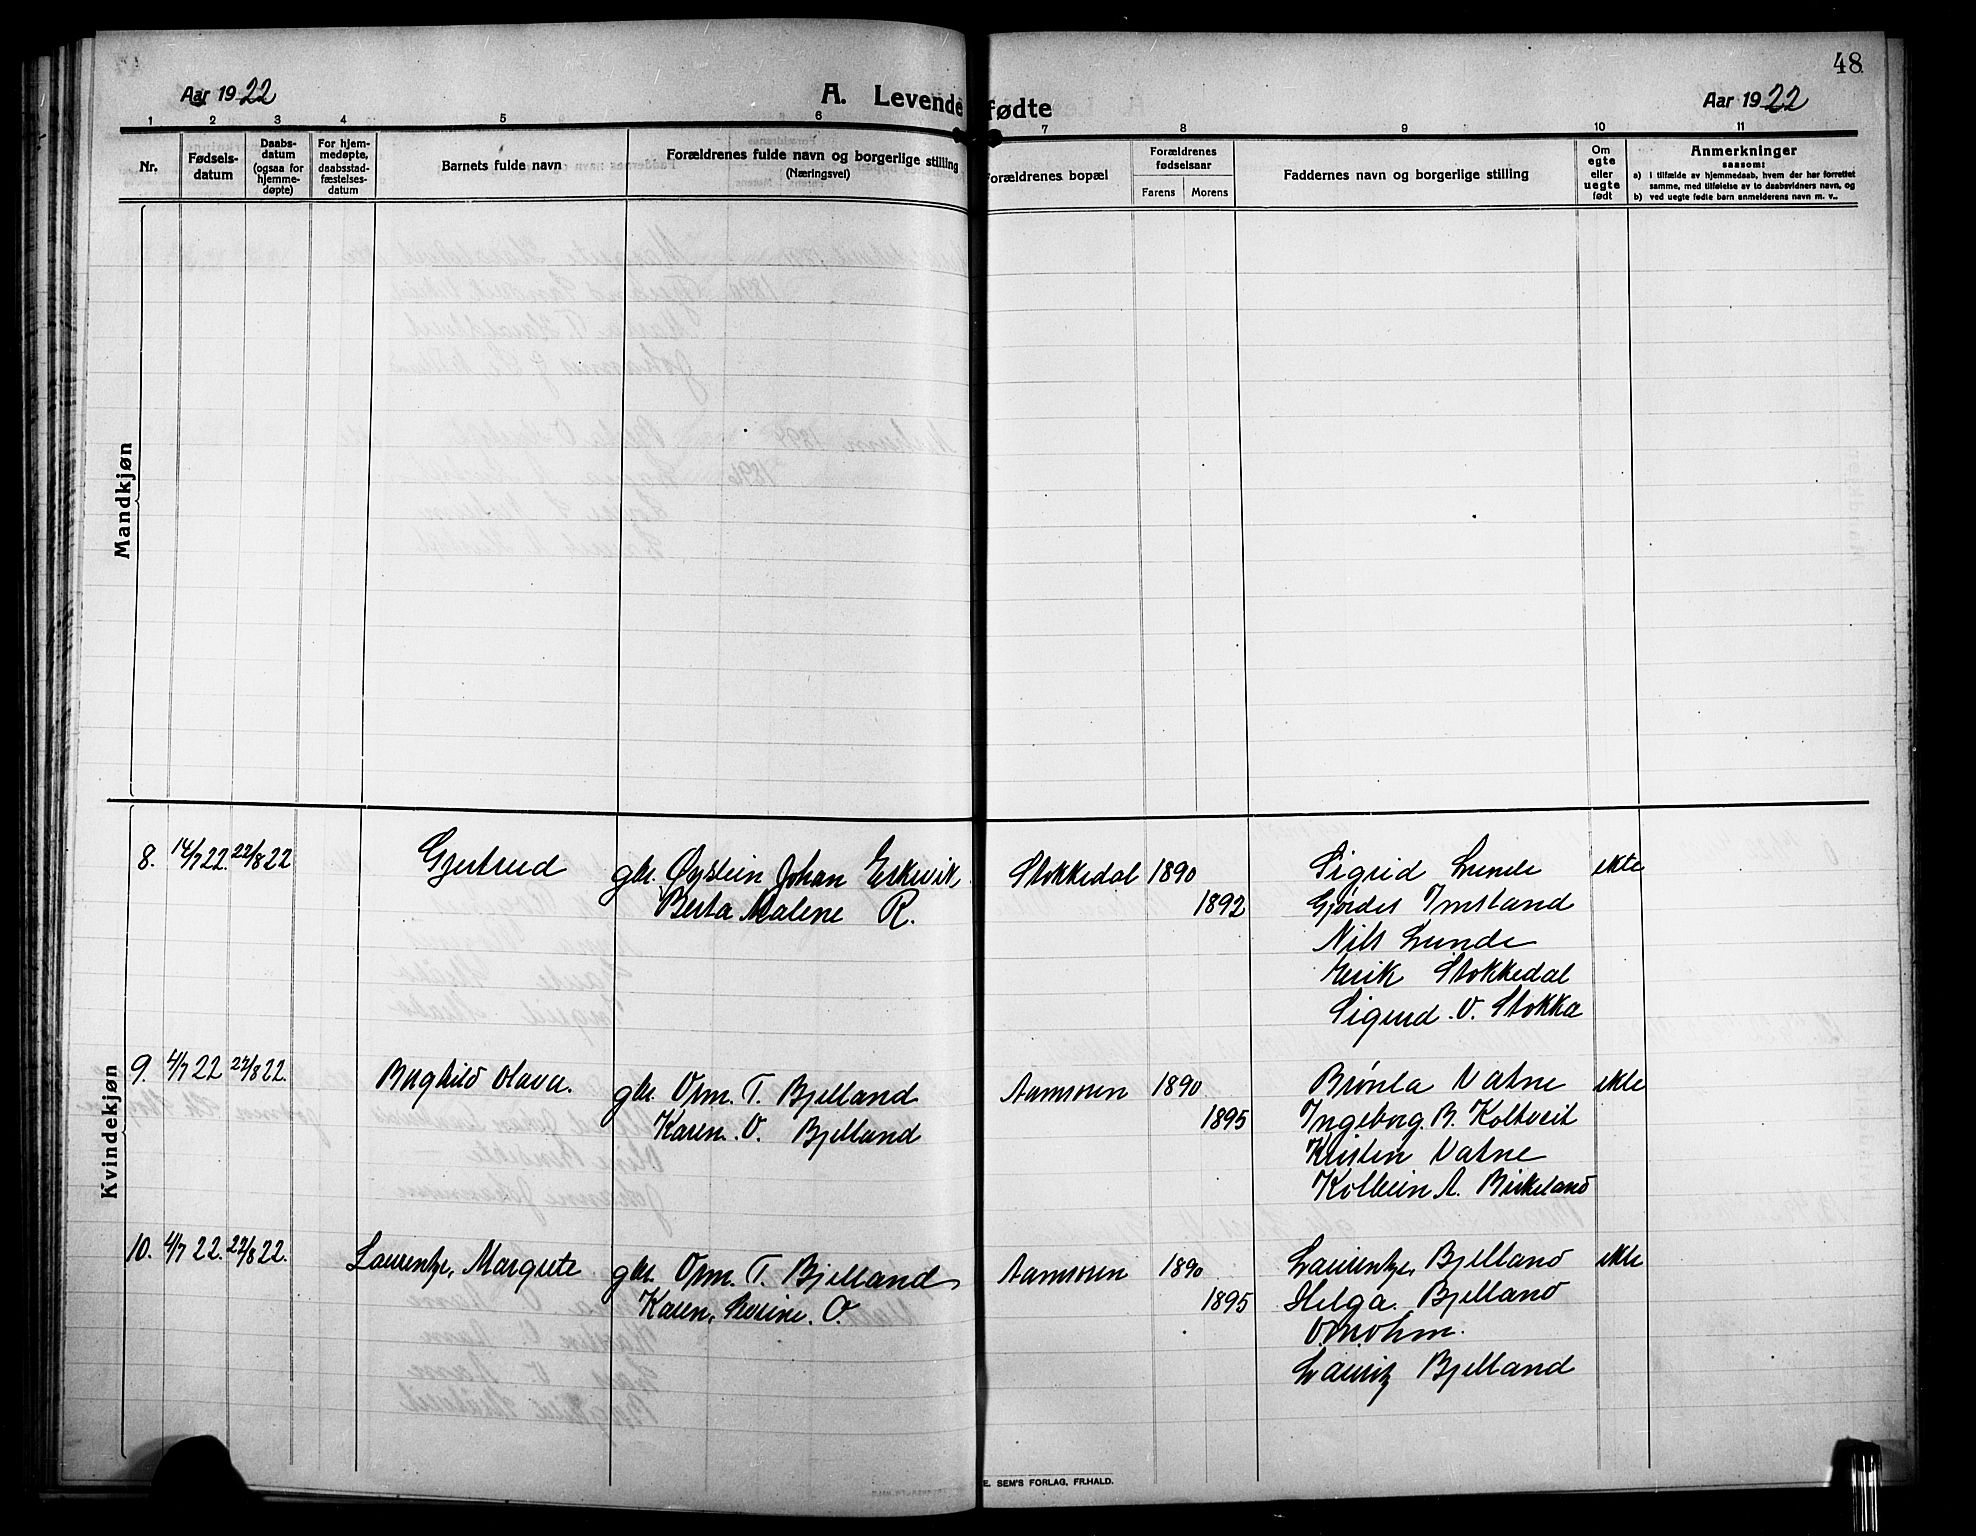 48
Aar 1922
A. Levende fødte
Aar 1922
1 2 3 4 5 6 7 8 9 10 11
Nr.
Fødsels-
datum
Daabs-
datum
(ogsaa for
hjemme-
døpte)
For hjem-
medøpte,
daabsstad-
fæstelses-
datum
Barnets fulde navn
Forældrenes fulde navn og borgerlige stilling
(Næringsvei)
Forældrenes bopæl
Forældrenes
fødselsaar
Farens Morens
Faddernes navn og borgerlige stilling
Om
egte
eller
uegte
født
Anmerkninger
saasom:
a) i tilfælde av hjemmedaab, hvem der har forrettet
samme, med tilføielse av to daabsvidners navn, og
b) ved uegte fødte barn anmelderens navn m. v..
Mandkjøn
Kvindekjøn
8. 14/7 22. 27/8 22 Gjertrud gbr. Øystein Johan Eskevik, Stokkedal 1890 Sigrid Lunde ekte
Berta Malene R. 1892 Gjørdes Imsland
Nils Lunde
Erik Stokkedal
Sigurd V. Stokka
9. 4/7 22 27/8 22. Borghild Olava. gbr. Orm. T. Bjelland Aamsosen 1890 Brønla Vatne ekte
Karen. O. Bjelland 1895 Ingeborg. B. Koltveit
Kristen Vatne
Kolbein A. Birkeland
10. 4/7 22. 27/8 22. Laurentze, Margrete gbr. Orm. T. Bjelland Aamsosen 1890 Laurentze, Bjelland ekte
Karen, Serine. O. 1895 Helga. Bjelland
Lauritz Bjelland
E. SEM'S FORLAG. FR.HALD.